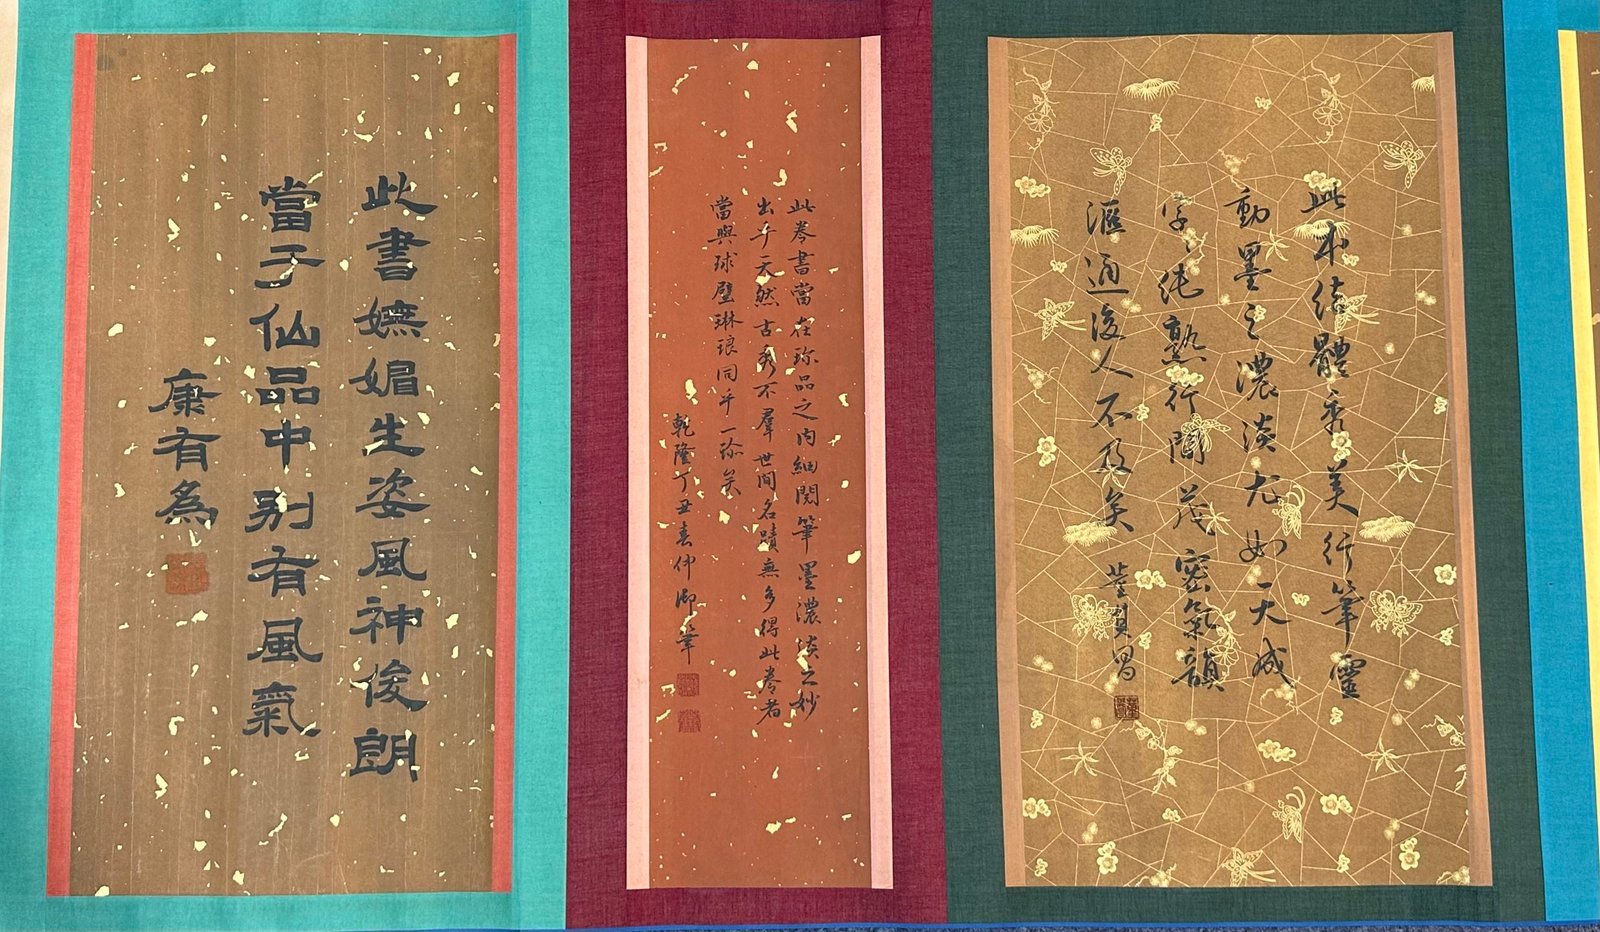 此本結體秀美行筆靈
動墨之濃淡尤如天成
字〻純熟行間茂密氣韻
滙通後人不及矣
董其昌
此卷書當在珎品之内細閱筆墨濃淡之妙
出乎天然古秀不羣世間名蹟無多得此卷者
當與球璧琳琅同乎一珎矣
乾隆丁丑春仲御筆
此書嫵媚生姿風神俊朗
當于仙品中别有風氣
康有為